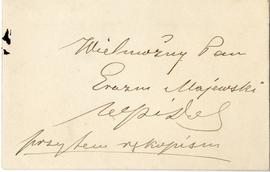 Wielmożny Pan
Erazm Majewski
przytem rękopism